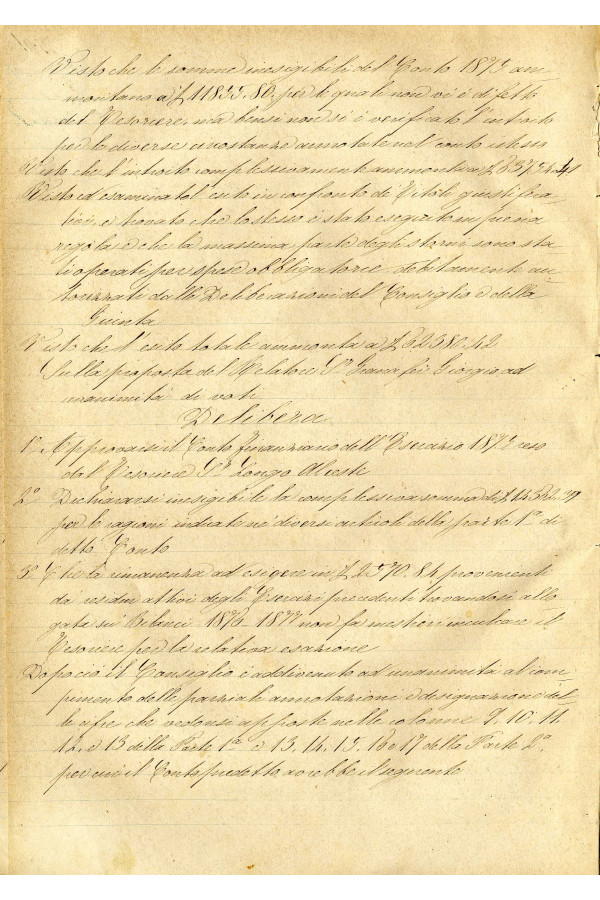 Visto che le somme inesigibili del Conto 1875 am-
montano a £ 11833.80, per le quali non vi è difetto
del Tesoriere, ma bensì non si è verificato l'introito
per le diverse circostanze annotate nel conto istesso
Visto che l'introito complessivamente ammonta a £
Visto ed esaminato l'esito in confronto di Titoli giustifica-
tivi, e trovato che lo stesso è stato eseguito in piena
regola, e che la massima parte degli storni sono sta-
ti operati per spese obbligatorie, debitamente au-
torizzati dalle Deliberazioni del Consiglio e della
Giunta
Visto che l'esito totale ammonta a £ 32380.42
Sulla proposta del Relatore Sr Giorgio, ad
unanimità di voti
Delibera
1o Approvarsi il Conto Finanziario dell'Esercizio 1875 reso
dal Tesoriere Sr Longo Alceste
2o Dichiararsi inesigibile la complessiva somma di £
per le ragioni indicate nei diversi articoli della parte 1a di
detto Conto
3o Che la rimanenza ad esigere in £ 2570.84 provenienti
da residui attivi degli Esercizi precedenti trovandosi allo-
gata sui Bilanci 1876 1877 non fa mestieri incubare il
Tesoriere per la relativa esazione
Dopo ciò il Consiglio è addivenuto ad unanimità al com-
pimento delle parziale annotazioni e designazione del-
le cifre che vedonsi apposte nelle colonne 9. 10. 11.
12. e 13 della Parte 1a e 13. 14. 15. 16 e 17 della Parte 2a.
per cui il Conto predetto avrebbe il seguente